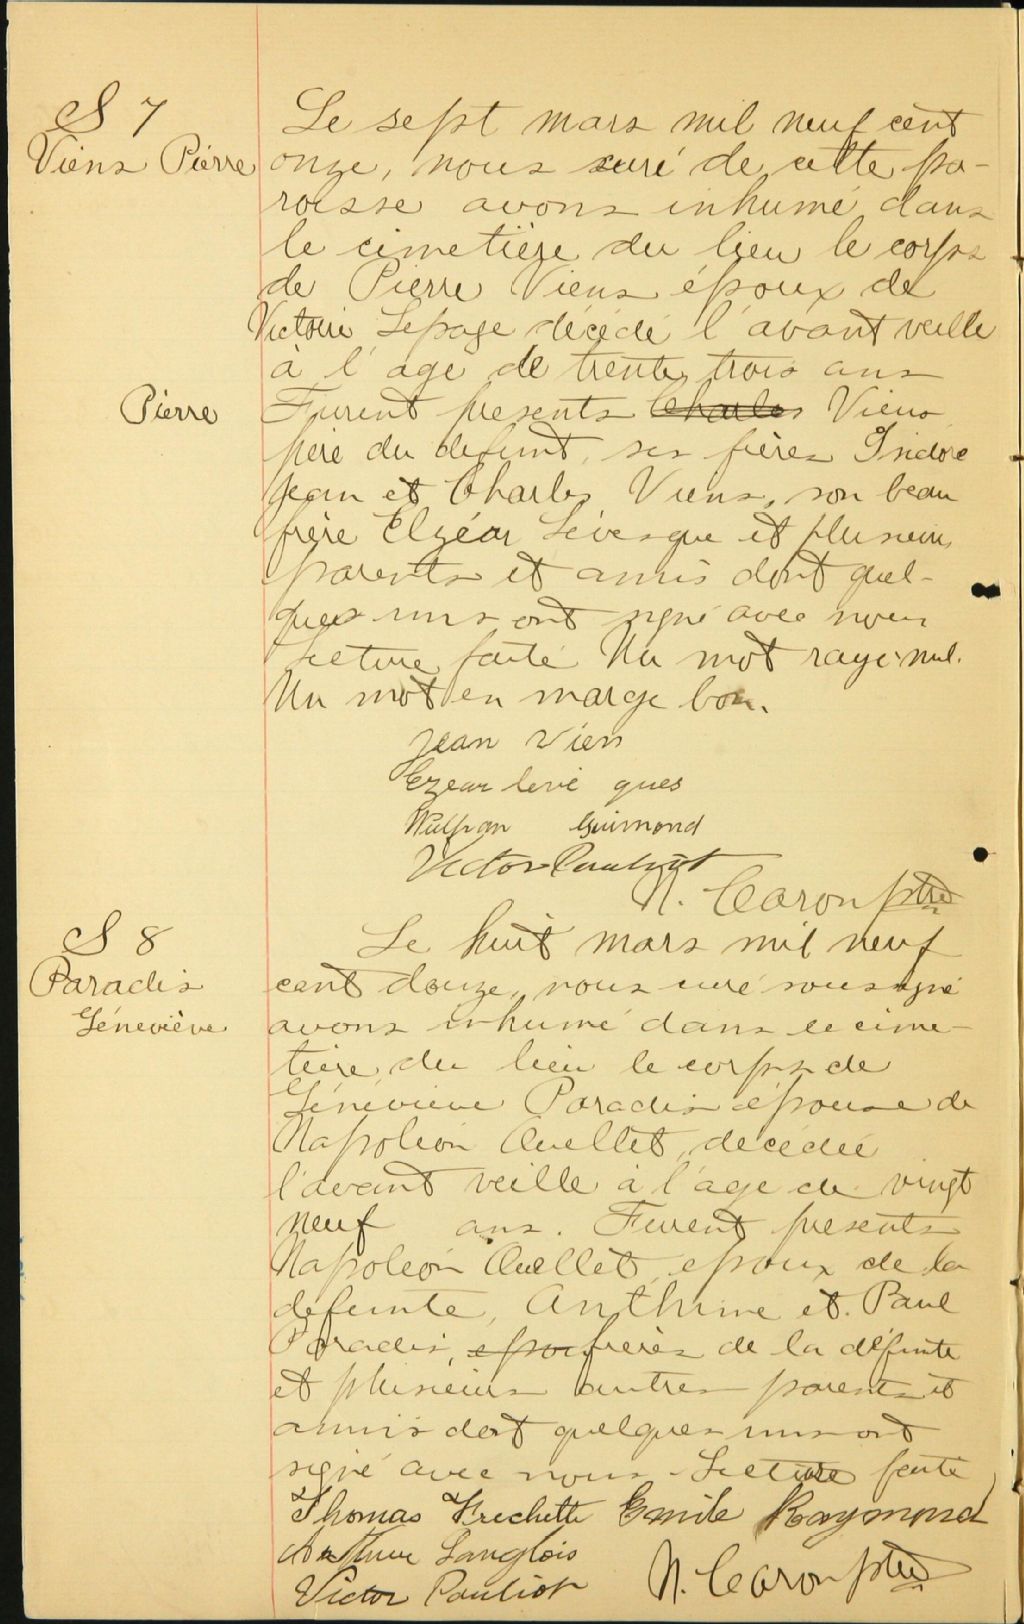 S 7
Viens Pierre
Le sept mars mil neuf cent
onze, nous curé de cette pa-
roisse avons inhumé dans
le cimetière du lieu le corps
de Pierre Viens époux de
Victoire Lepage décédé l'avant veille
à l'age de trente trois ans
Pierre
Furent presents Charles Viens
père du defunt, ses frères Isidore
Jean et Charles Viens, son beau
frère Elzéar Lévesque et plusieurs
parents et amis dont quel-
ques uns ont signé avec nous
Lecture faite Un mot rayé nul.
Un mot en marge bon.
Jean Vien
Ezear levé ques
Wulfran Guimond
Victor Pauliot
N. Caron ptre
S 8
Paradis
Géneviève
Le huit mars mil neuf
cent douze, nous curé soussigné
avons inhumé dans le cime-
tière du lieu le corps de
Géneviève Paradis épouse de
Napoléon Ouellet, décédée
l'avant veille à l'age de vingt
neuf ans. Furent presents
Napoléon Ouellet, epoux de la
defunte, Anthime et Paul
Paradis, epou frères de la défunte
et plusieurs autres parents et
amis dont quelques uns ont
signé avec nous Lecture faite
Thomas Frechette Emile Raymond
Arthur Langlois
Victor Pauliot N. Caron ptre